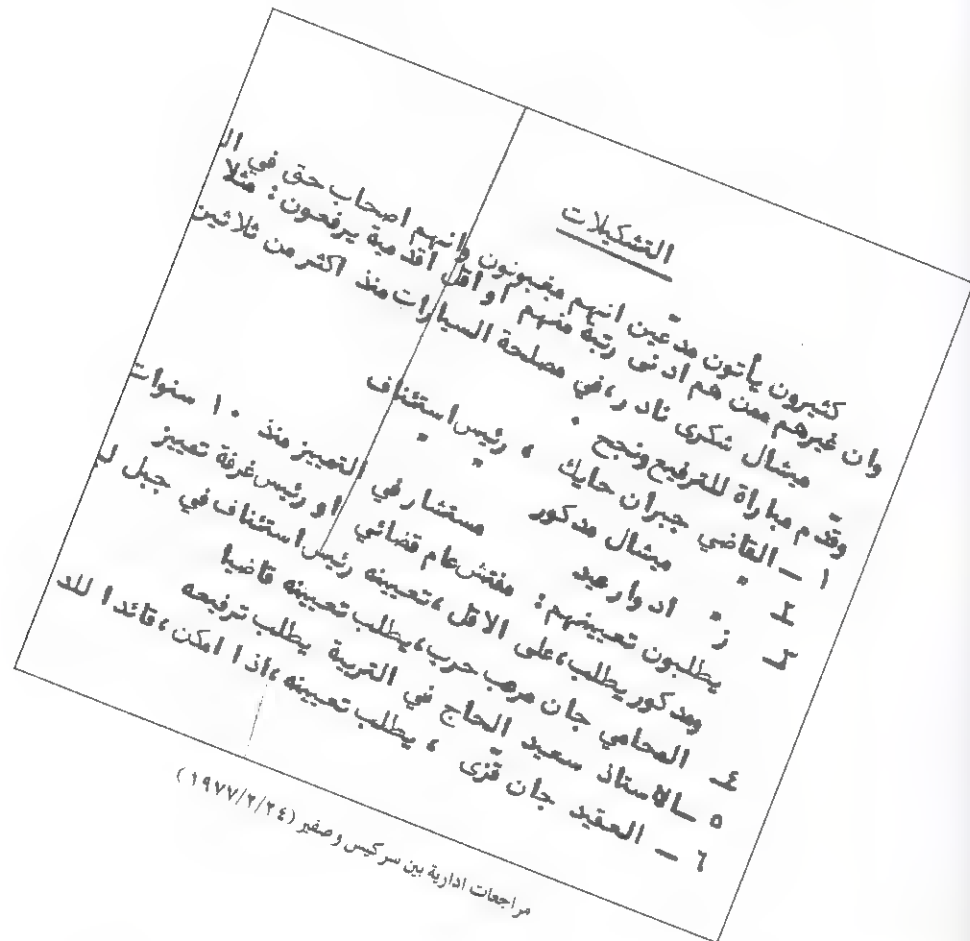 التشكيلات
كثيرون يأتون مدّعين انهم مغبونون وانهم اصحاب حق في ال
وان غيرهم ممن هم ادنى رتبة منهم او اقل اقدمية يرفعون: مثلا
ميشال شكرى نادر، في مصلحة السيارات منذ اكثر من ثلاثين
وقدّم مباراة للترفيع ونجح .
١ – القاضي جبران حايك ، رئيس استئناف
٢ – " ميشال مدكور " "
٣ – " ادوار عيد مستشار في التمييز منذ ١٠ سنوات
يطلبون تعيينهم: مفتش عام قضائي او رئيس غرفة تمييز
ومدكور يطلب، على الاقل، تعيينه رئيس استئناف في جبل لب
٤ – المحامي جان مرهب حرب، يطلب تعيينه قاضيا
٥ – الاستاذ سعيد الحاج في التربية يطلب ترفيعه
٦ – العقيد جان قزّى ، يطلب تعيينه، اذا امكن، قائدا للد
مراجعات ادارية بين سركيس وصفير (١٩٧٧/٢/٢٤)